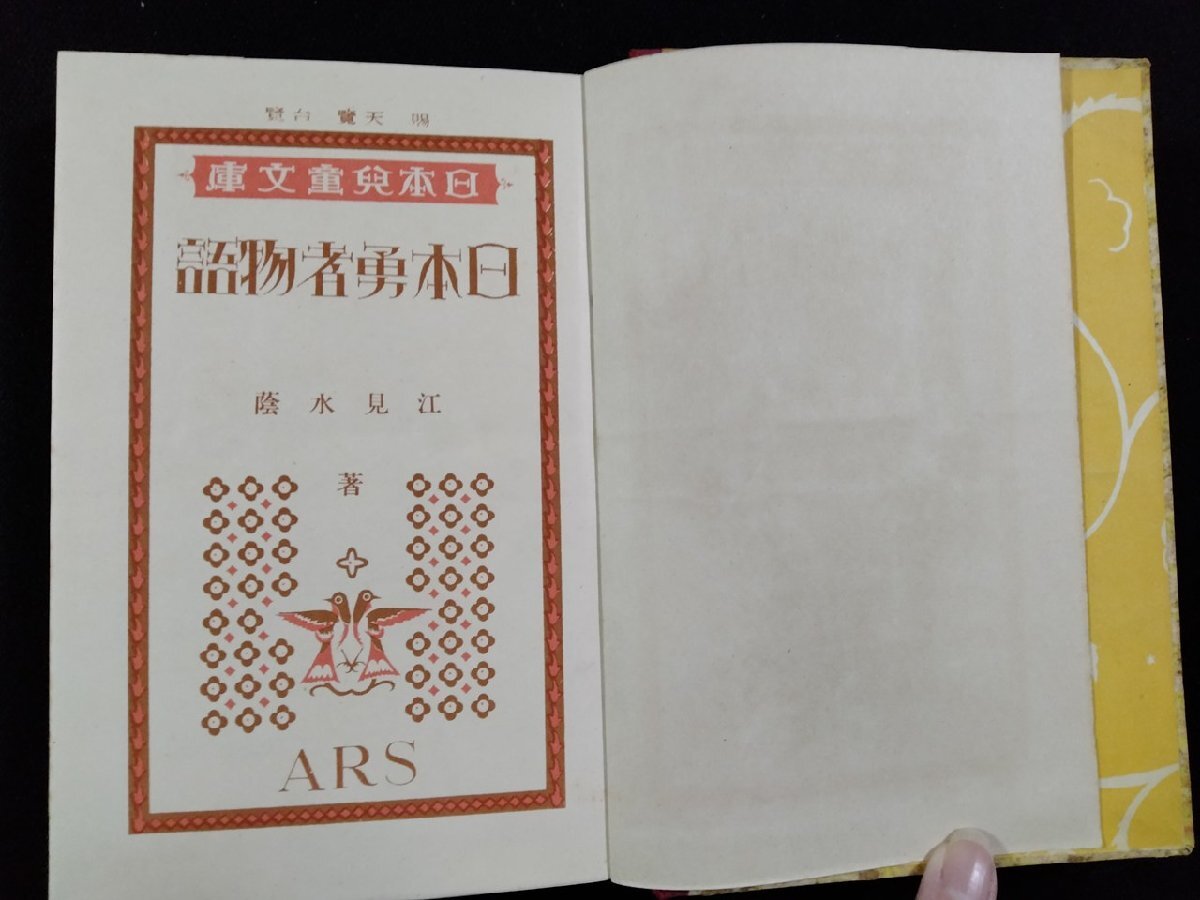 賜 天覽 台覽
日本兒童文庫
日本勇者物語
江見水蔭
著
ARS